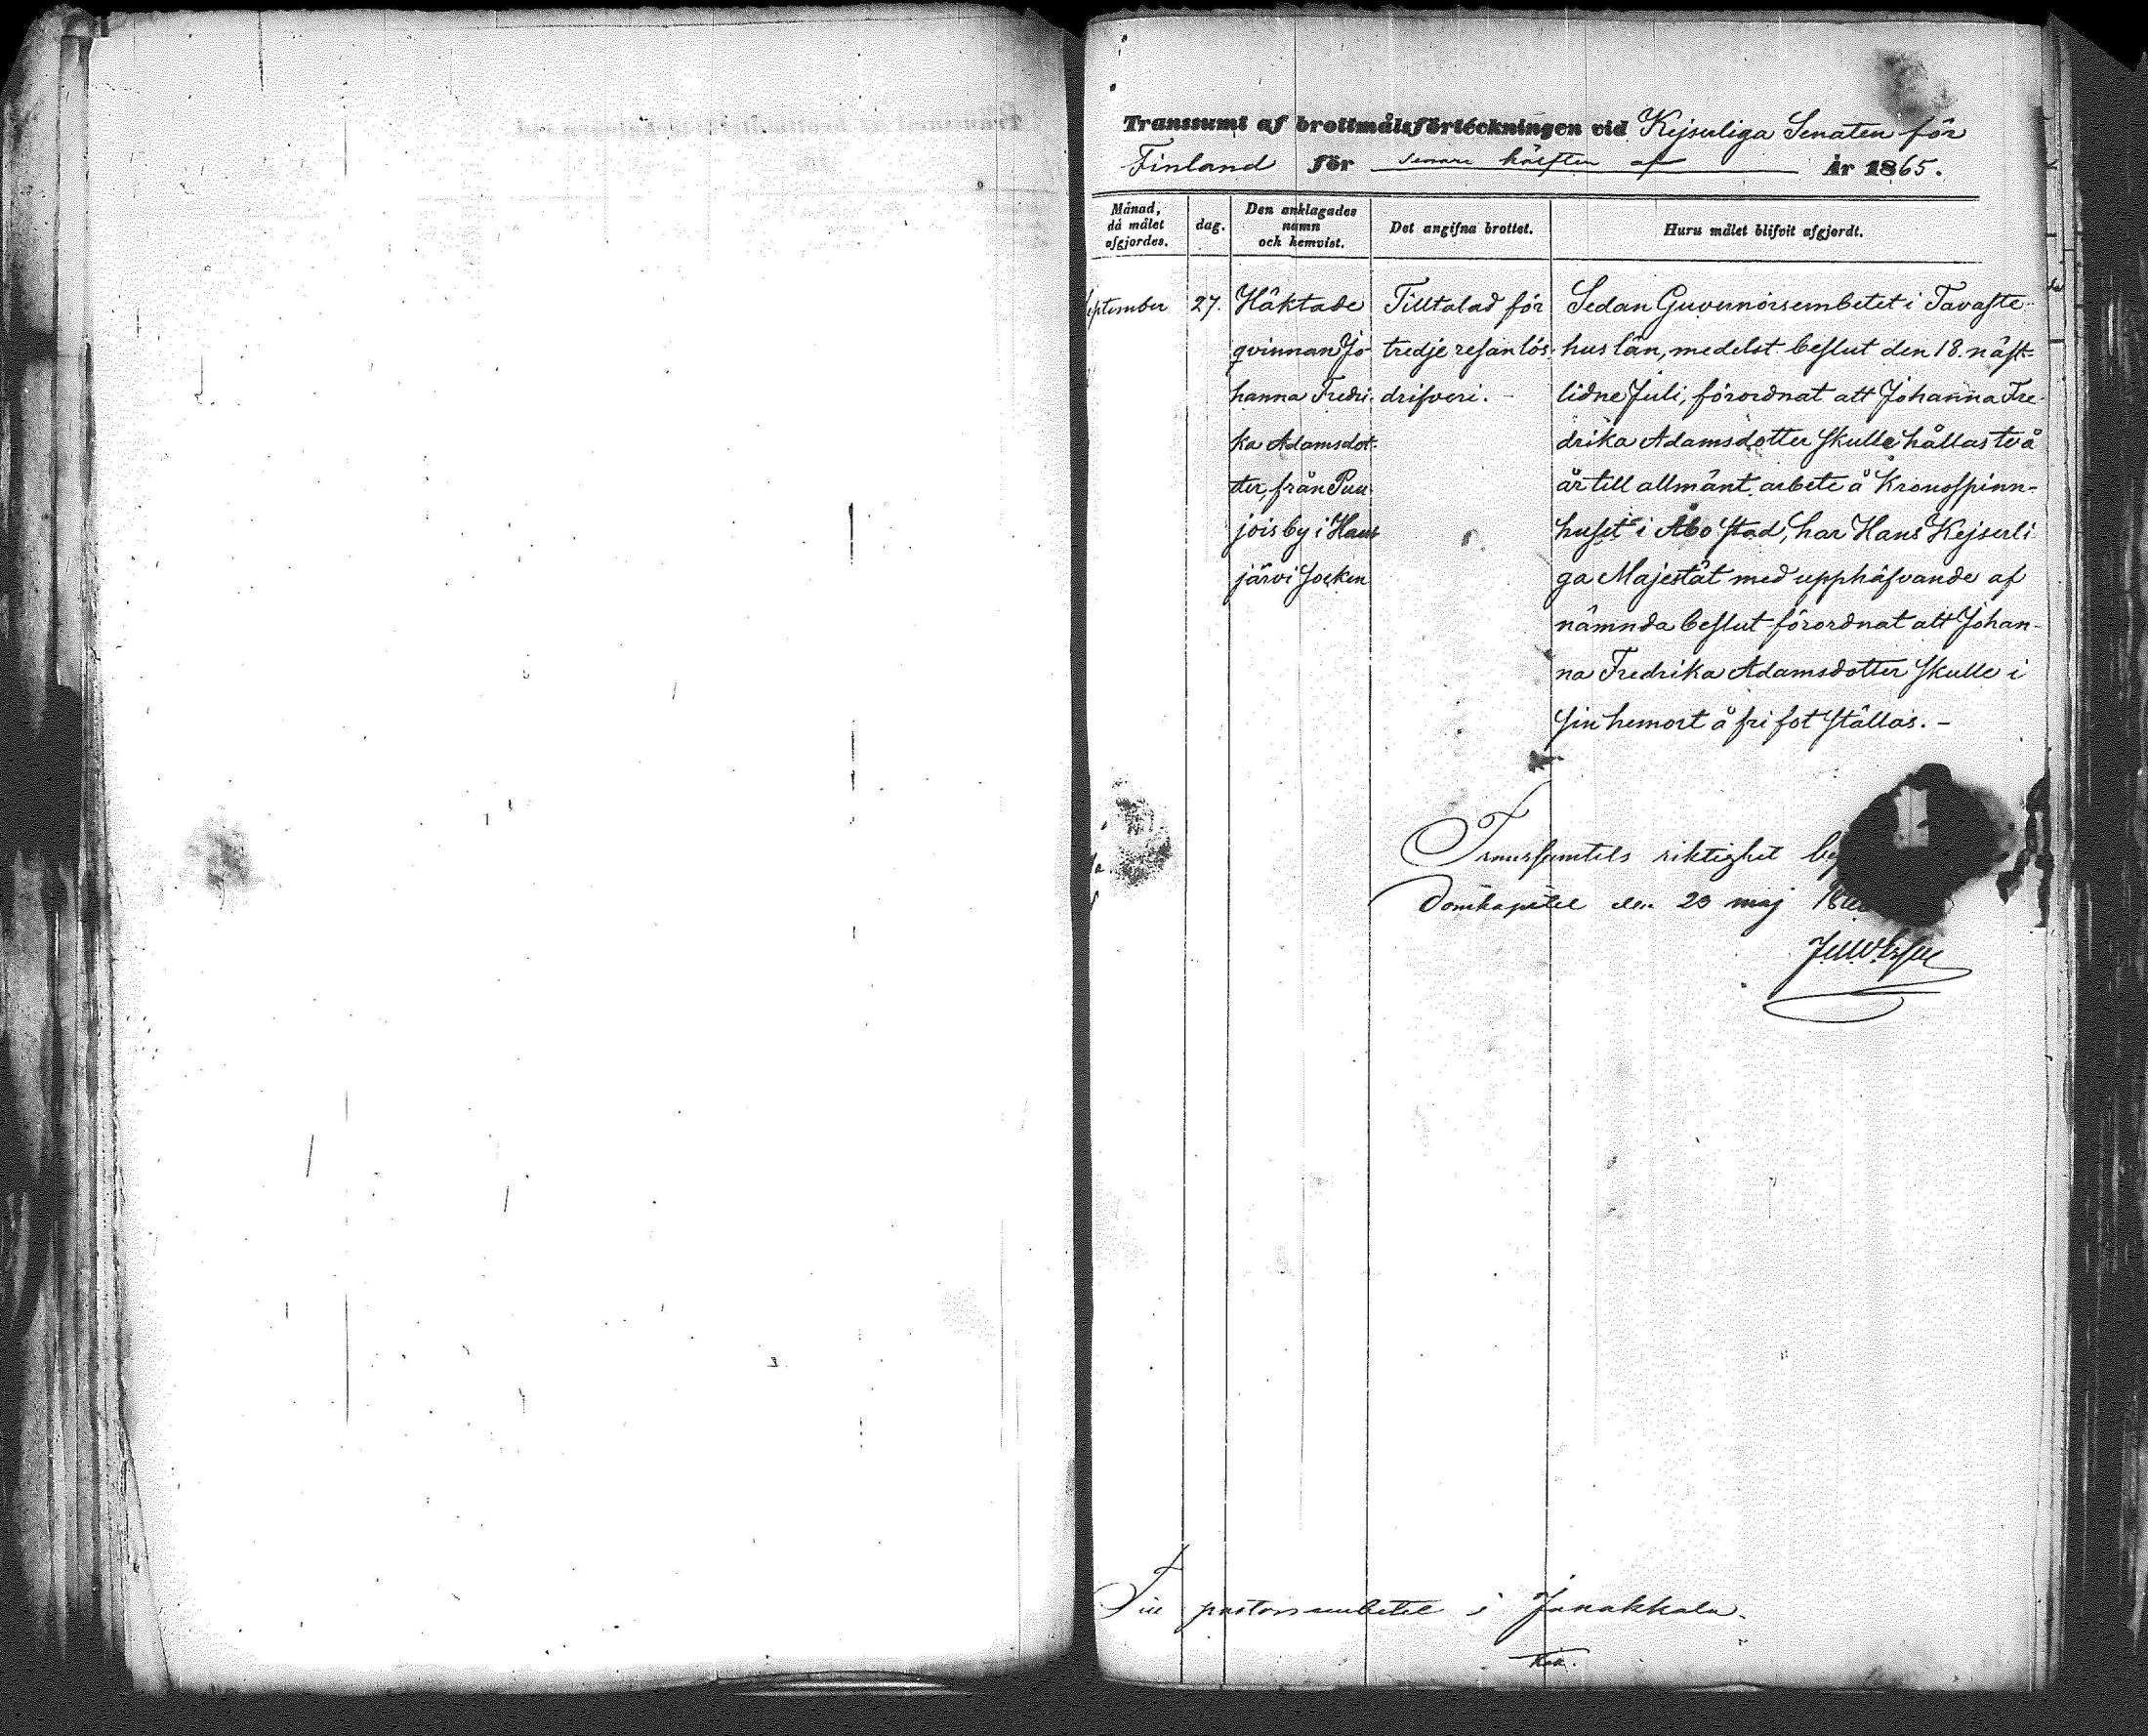 Transsumt af brottmålsförteckningen vid Kejserliga Senaten för
Finland för senare hälften af År 1865.
Månad, då målet afgjordes.
dag.
Den anklagades namn och hemvist.
Det angifna brottet.
Huru målet blifvit afgjordt.
September
27.
Häktade
qvinnan Jo-
hanna Fredri-
ka Adamsdot-
ter, från Puu-
jois by i Haus-
järvi Socken
Tilltalad för
tredje resan lös-
drifveri. -
Sedan Guvernörsembetet i Tavaste-
hus län, medelst beslut den 18. näst-
lidne Juli, förordnat att Johanna Fre-
drika Adamsdotter skulle hållas två
år till allmänt arbete å Kronospinn-
huset i Åbo stad, har Hans Kejserli-
ga Majestät med upphäfvande af
nämnda beslut förordnat att Johan-
na Fredrika Adamsdotter skulle i
sin hemort å fri fot ställas. -
Transsumtets riktighet
Domkapitel den 23 maj
Till pastorsembetet i Janakkala.